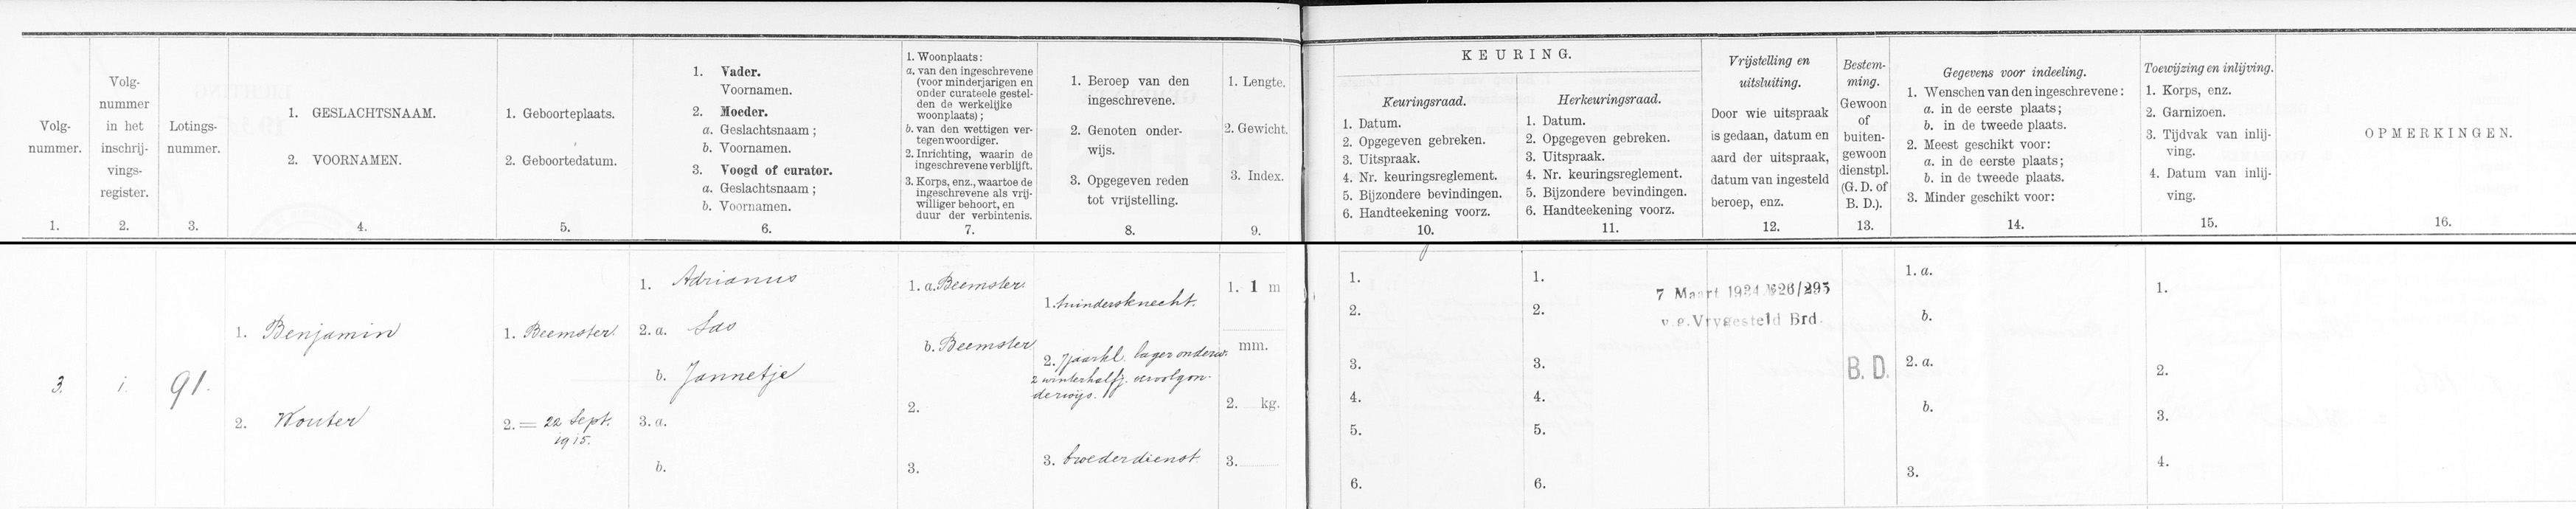 Volg-
nummer.
1.
Volg-
nummer
in het
inschrij-
vings-
register.
2.
Lotings-
nummer.
3.
1. GESLACHTSNAAM.
2. VOORNAMEN.
4.
1. Geboorteplaats.
2. Geboortedatum.
5.
1. Vader.
Voornamen.
2. Moeder.
a. Geslachtsnaam;
b. Voornamen.
3. Voogd of curator.
a. Geslachtsnaam;
b. Voornamen.
6.
1. Woonplaats:
a. van den ingeschrevene
(voor minderjarigen en
onder curateele gestel-
den de werkelijke
woonplaats);
b. van den wettigen ver-
tegenwoordiger.
2. Inrichting, waarin de
ingeschrevene verblijft.
3. Korps, enz., waartoe de
ingeschrevene als vrij-
williger behoort, en
duur der verbintenis.
7.
1. Beroep van den
ingeschrevene.
2. Genoten onder-
wijs.
3. Opgegeven reden
tot vrijstelling.
8.
1. Lengte.
2. Gewicht.
3. Index.
9.
KEURING.
Keuringsraad.
1. Datum.
2. Opgegeven gebreken.
3. Uitspraak.
4. Nr. keuringsreglement.
5. Bijzondere bevindingen.
6. Handteekening voorz.
10.
Herkeuringsraad.
1. Datum.
2. Opgegeven gebreken.
3. Uitspraak.
4. Nr. keuringsreglement.
5. Bijzondere bevindingen.
6. Handteekening voorz.
11.
Vrijstelling en
uitsluiting.
Door wie uitspraak
is gedaan, datum en
aard der uitspraak,
datum van ingesteld
beroep, enz.
12.
Bestem-
ming.
Gewoon
of
buiten-
gewoon
dienstpl.
(G. D. of
B. D.).
13.
Gegevens voor indeeling.
1. Wenschen van den ingeschrevene:
a. in de eerste plaats;
b. in de tweede plaats.
2. Meest geschikt voor:
a. in de eerste plaats;
b. in de tweede plaats.
3. Minder geschikt voor:
14.
Toewijzing en inlijving.
1. Korps, enz.
2. Garnizoen.
3. Tijdvak van inlij-
ving.
4. Datum van inlij-
ving.
15.
OPMERKINGEN.
16.
3.
1.
91.
1. Benjamin
2. Wouter
1. Beemster
2. = 22 Sept.
1915.
1. Adrianus
2. a. Sas
b. Jannetje
3. a.
b.
1. a. Beemster
b. Beemster
2.
3.
1. tuindersknecht.
2. 7 jaarkl. lager onderw.
2 winterhalfj. vervolgon-
derwijs.
3. broederdienst.
1. 1 m
mm.
2. kg.
3.
1.
2.
3.
4.
5.
6.
1.
2.
3.
4.
5.
6.
7 Maart 1934 № 26/295
v.g. Vrygesteld Brd.
B. D.
1. a.
b.
2. a.
b.
3.
1.
2.
3.
4.